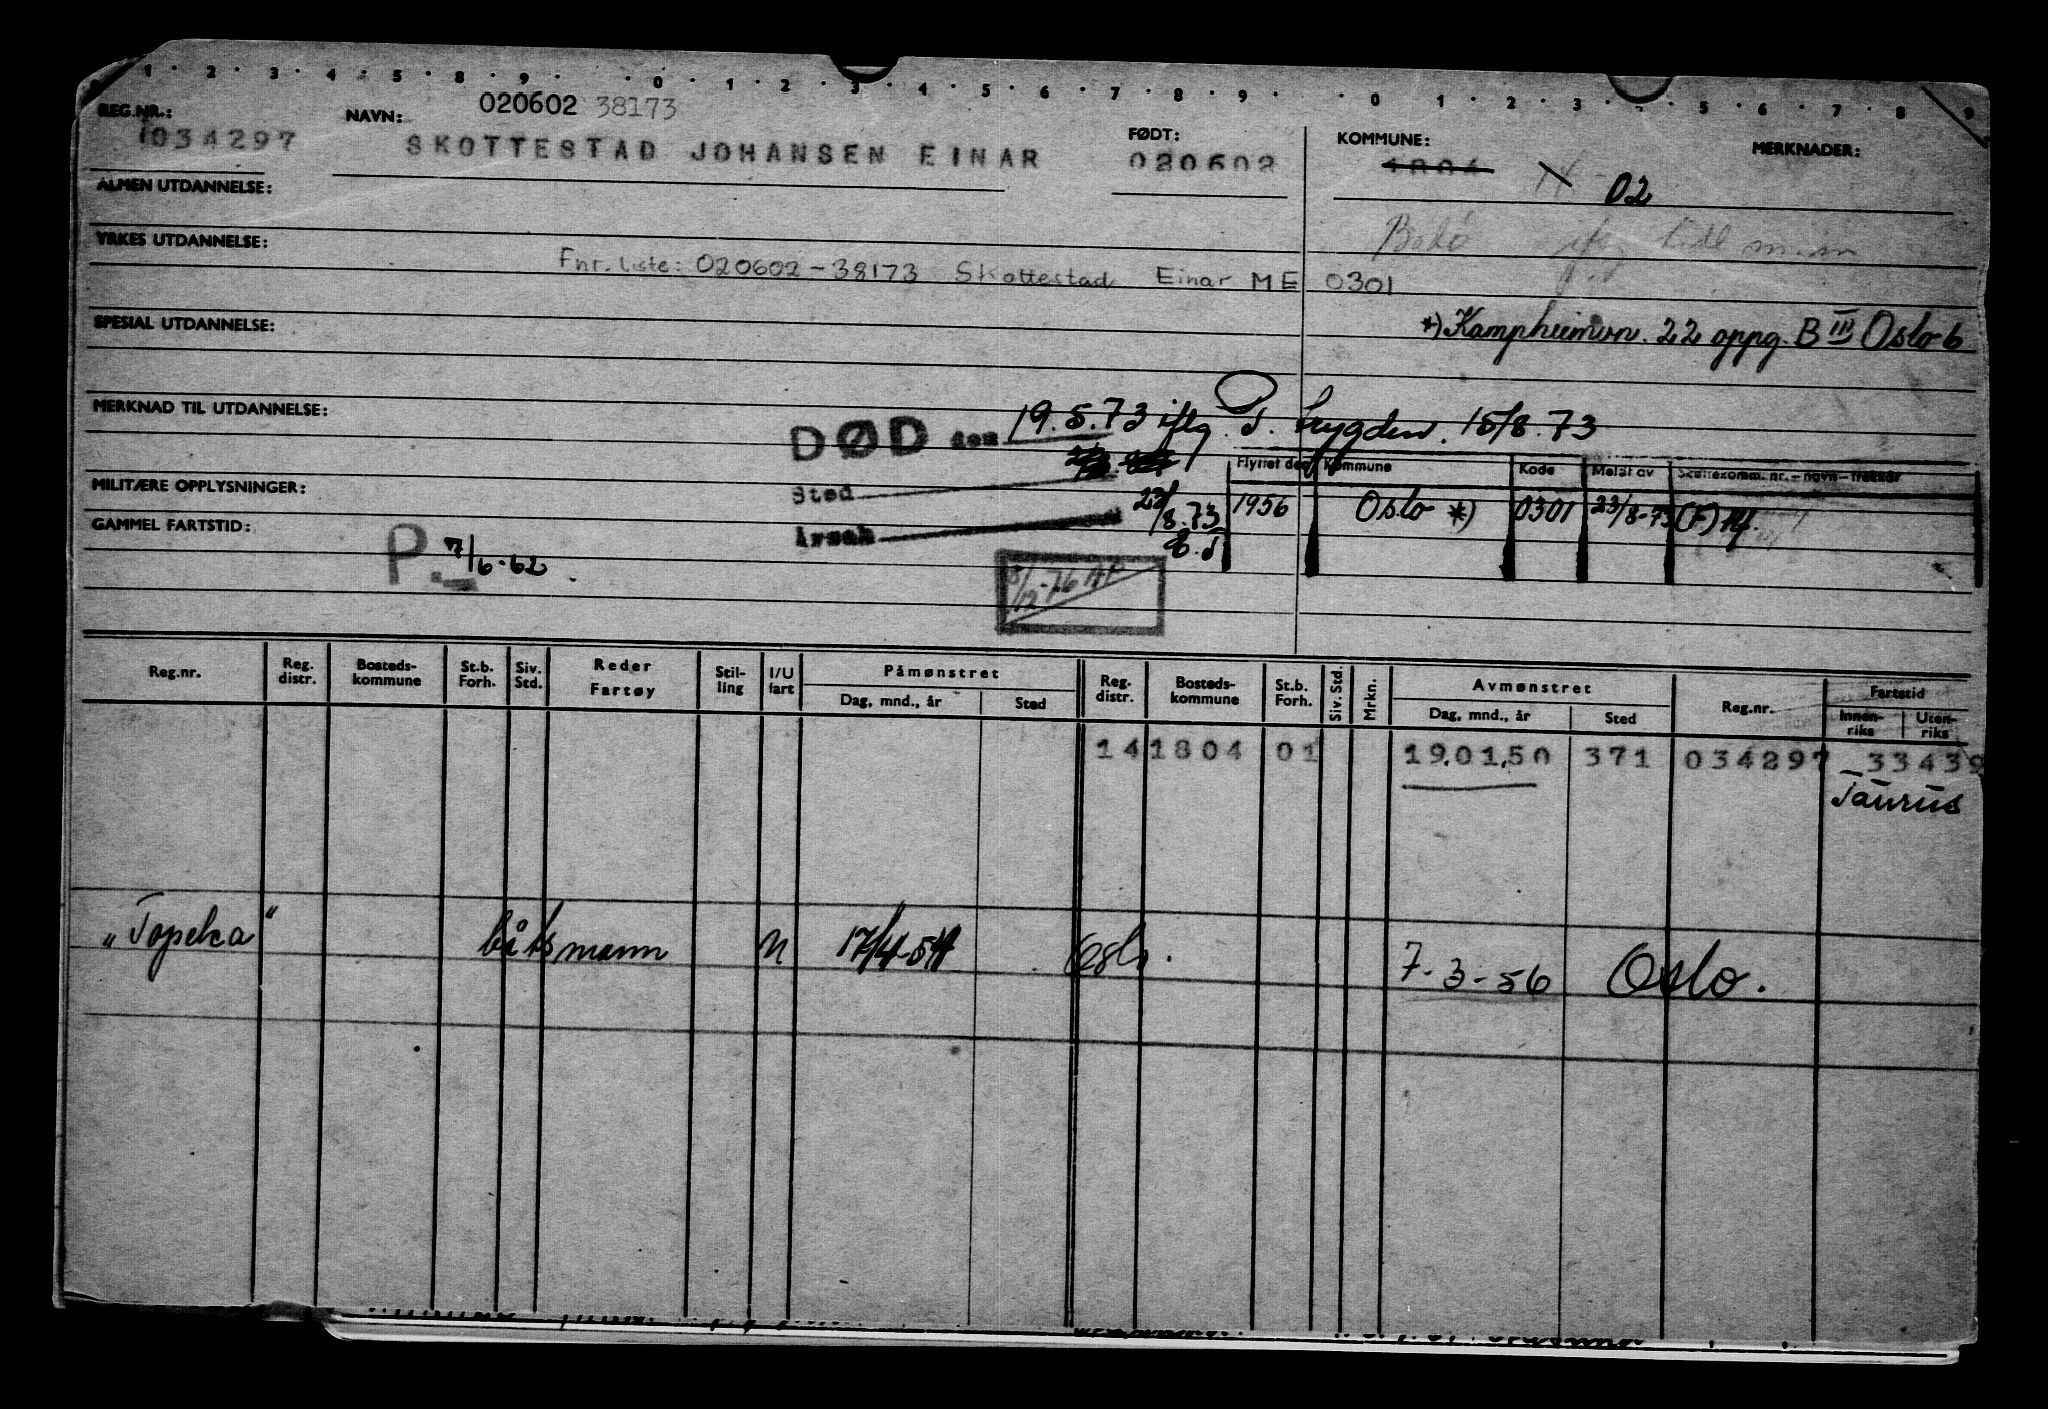 1 · 2 · 3 · 4 · 5 · 8 · 9 · · 0 · 1 · 2 · 3 · 4 · 5 · 6 · 7 · 8 · 9 · · 0 · 1 · 2 · 3 · 5 · 6 · 7 · 8 · 9
REG.NR.: NAVN: 020602 38173 FØDT: KOMMUNE: MERKNADER:
1034297 SKOTTESTAD JOHANSEN EINAR 020602 1804 02
ALMEN UTDANNELSE:
Bodø
YRKES UTDANNELSE:
Fnr. liste: 020602-38173 Skottestad Einar ME 0301
SPESIAL UTDANNELSE: *) Kampheimvn. 22 oppg. B III Oslo 6
MERKNAD TIL UTDANNELSE: DØD den 19.5.73 iflg. Trygden. 15/8.73
Flyttet den Kommune Kode Meldt av Skattekomm. nr. – navn – trekkår
MILITÆRE OPPLYSNINGER: Sted
23/8.73 1956 Oslo *) 0301 23/8-73 (F) 14.
GAMMEL FARTSTID: P. 7/6-62 Årsak
5/12-76
Reg.nr. Reg. distr. Bosteds-kommune St.b. Forh. Siv. Std. Reder Fartøy Stil-ling I/U fart Påmønstret Reg. distr. Bosteds-kommune St.b. Forh. Siv. Std. Mrkn. Avmønstret Reg.nr. Fartstid
Dag, mnd., år Sted Dag, mnd., år Sted Innen-riks Uten-riks
14 1804 01 19.01.50 371 034297 33439
Taurus
„Topeka" båtsmann U 17/4-54 Oslo. 7-3-56 Oslo.